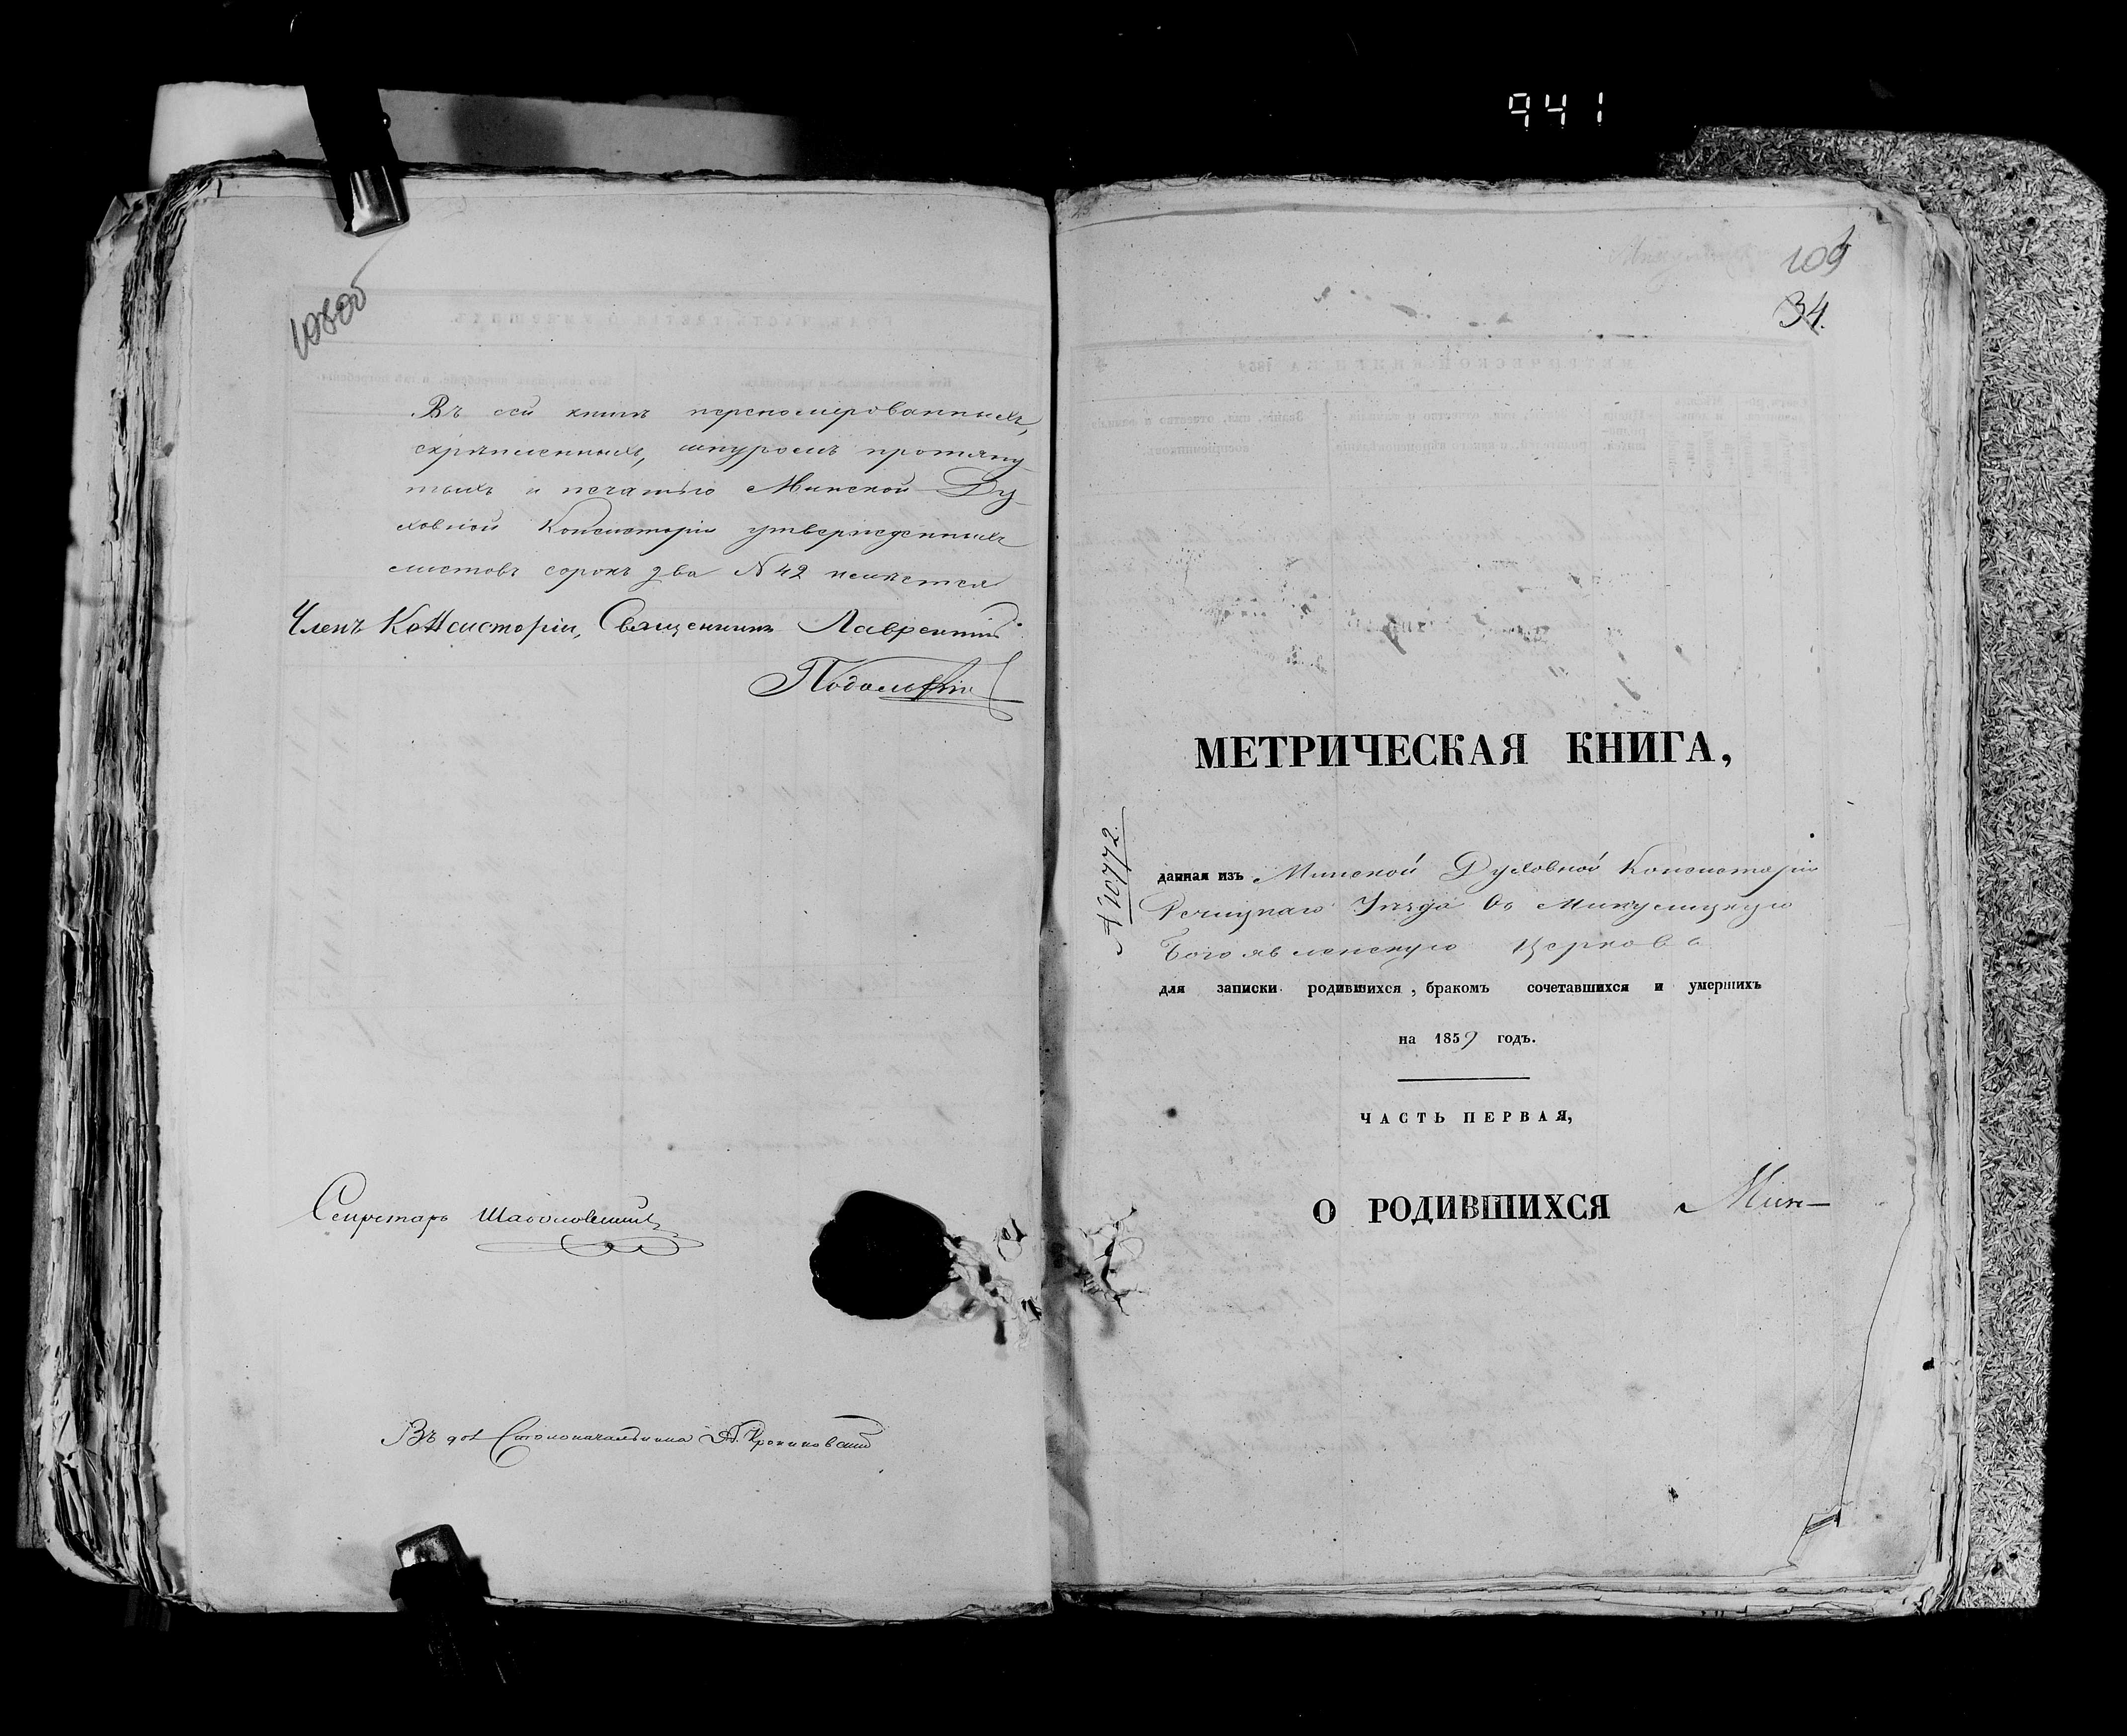 941
108об
Въ сей книгѣ переномерованныхъ,
скрѣпленныхъ, шнуромъ протяну-
тыхъ и печатью Минской Ду-
ховной Консисторіи утвержденныхъ
листовъ сорокъ два № 42 имѣется
Членъ Консисторіи, Священникъ Лаврентій
Подольскій
Секретарь
Въ дол. Столоначальника
109
34.
МЕТРИЧЕСКАЯ КНИГА,
№ 10772.
данная изъ Минской Духовной Консисторіи
Речицкаго Уѣзда въ Микулицкую
Богоявленскую Церковь
для записки родившихся, бракомъ сочетавшихся и умершихъ
на 1859 годъ.
ЧАСТЬ ПЕРВАЯ,
О РОДИВШИХСЯ Мин-